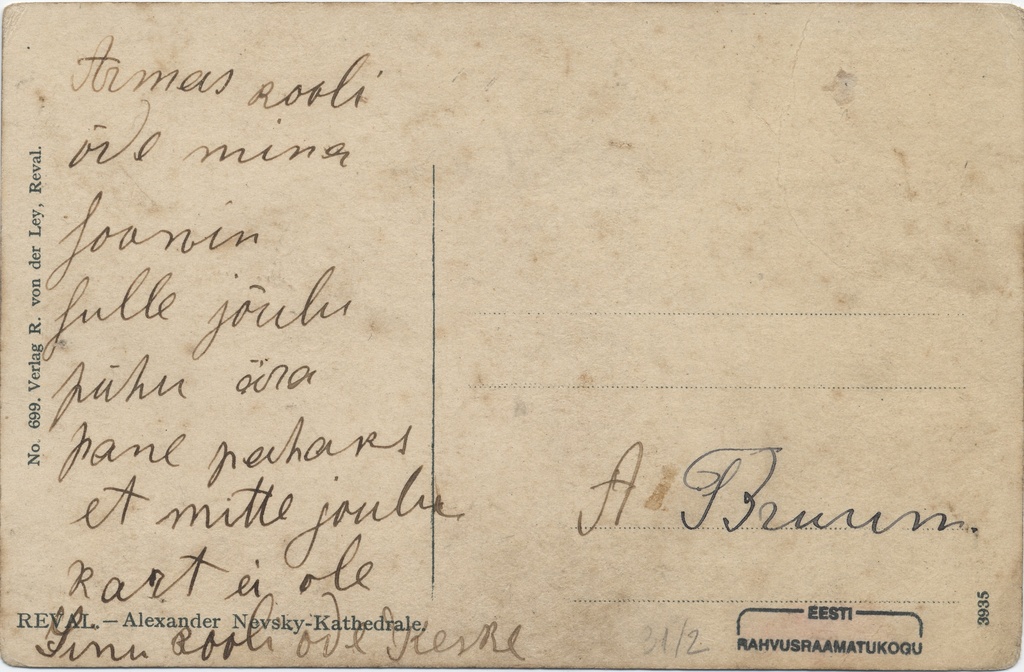 Armas kooli
õde mina
soovin
sulle jõulu
pühu ära
pane pahaks
et mitte joulu
kart ei ole
Sinu kooli õde
No. 699. Verlag R. von der Ley, Reval.
REVAL. — Alexander Nevsky-Kathedrale.
A Bruum.
31/2
EESTI
RAHVUSRAAMATUKOGU
3935